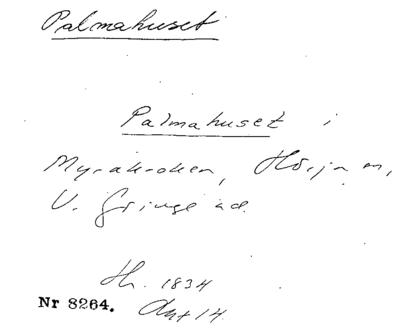 Palmahuset
Palmahuset i
Myrakroken, Hörja sn,
V. Göinge hd.
Th. 1834
Nr 8264. Ant 14.